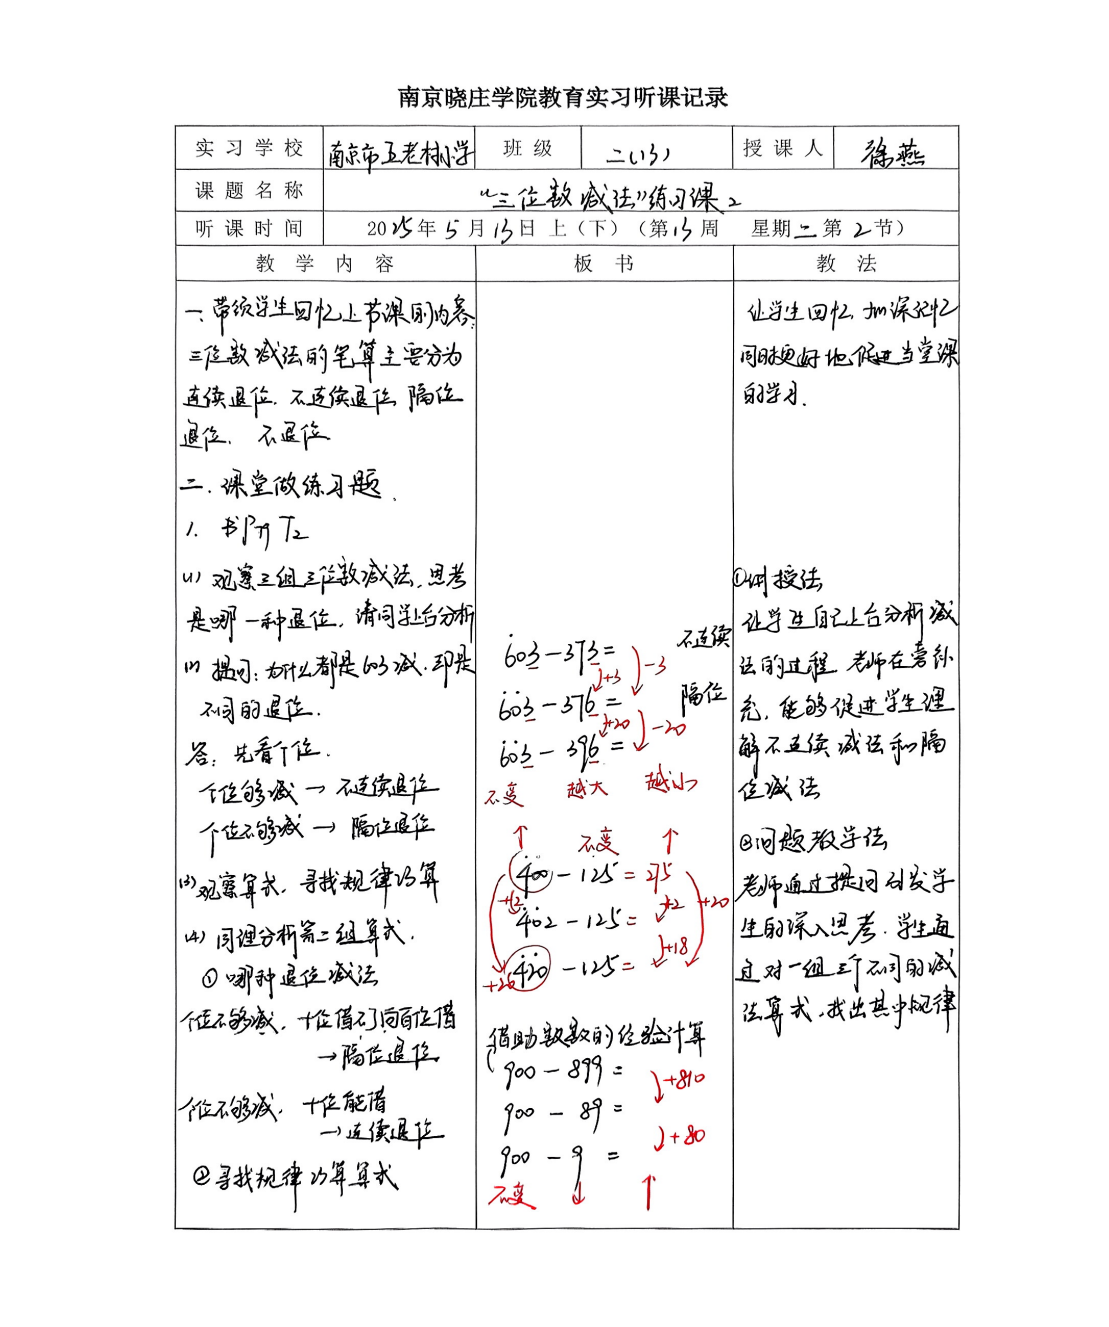 南京晓庄学院教育实习听课记录
实习学校 南京市五老村小学 班级 二(3) 授课人 徐燕
课题名称 “三位数减法”练习课2
听课时间 2025年5月13日 上（下）（第13周 星期二第2节）
教学内容 板书 教法
一、带领学生回忆上节课的内容:
三位数减法的笔算主要分为
连续退位、不连续退位、隔位
退位、不退位
二、课堂做练习题.
1. 书P79 T2
(1) 观察三组三位数减法，思考
是哪一种退位，请同学上台分析
(2) 提问：为什么都是603减，却是
不同的退位.
答：先看个位.
个位够减 → 不连续退位
个位不够减 → 隔位退位
(3) 观察算式，寻找规律巧算
(4) 同理分析第二组算式.
① 哪种退位减法
个位不够减，十位借不了向百位借
→隔位退位
个位不够减，十位能借
→连续退位
② 寻找规律巧算算式
603-373= 不连续
+3 -3
603-376= 隔位
+20 -20
603-396=
不变 越大 越小
↑ 不变 ↑
400-125=275
+2 +2 +20
402-125=
+18
420-125=
+20
借助数数的经验计算
900-899=
+810
900-89=
+80
900-9=
不变 ↓ ↑
让学生回忆，加深记忆
同时更好地促进当堂课
的学习.
①讲授法
让学生自己上台分析减
法的过程 老师在旁补
充，能够促进学生理
解不连续减法和隔
位减法
②问题教学法
老师通过提问引发学
生的深入思考. 学生通
过对一组三个不同的减
法算式，找出其中规律